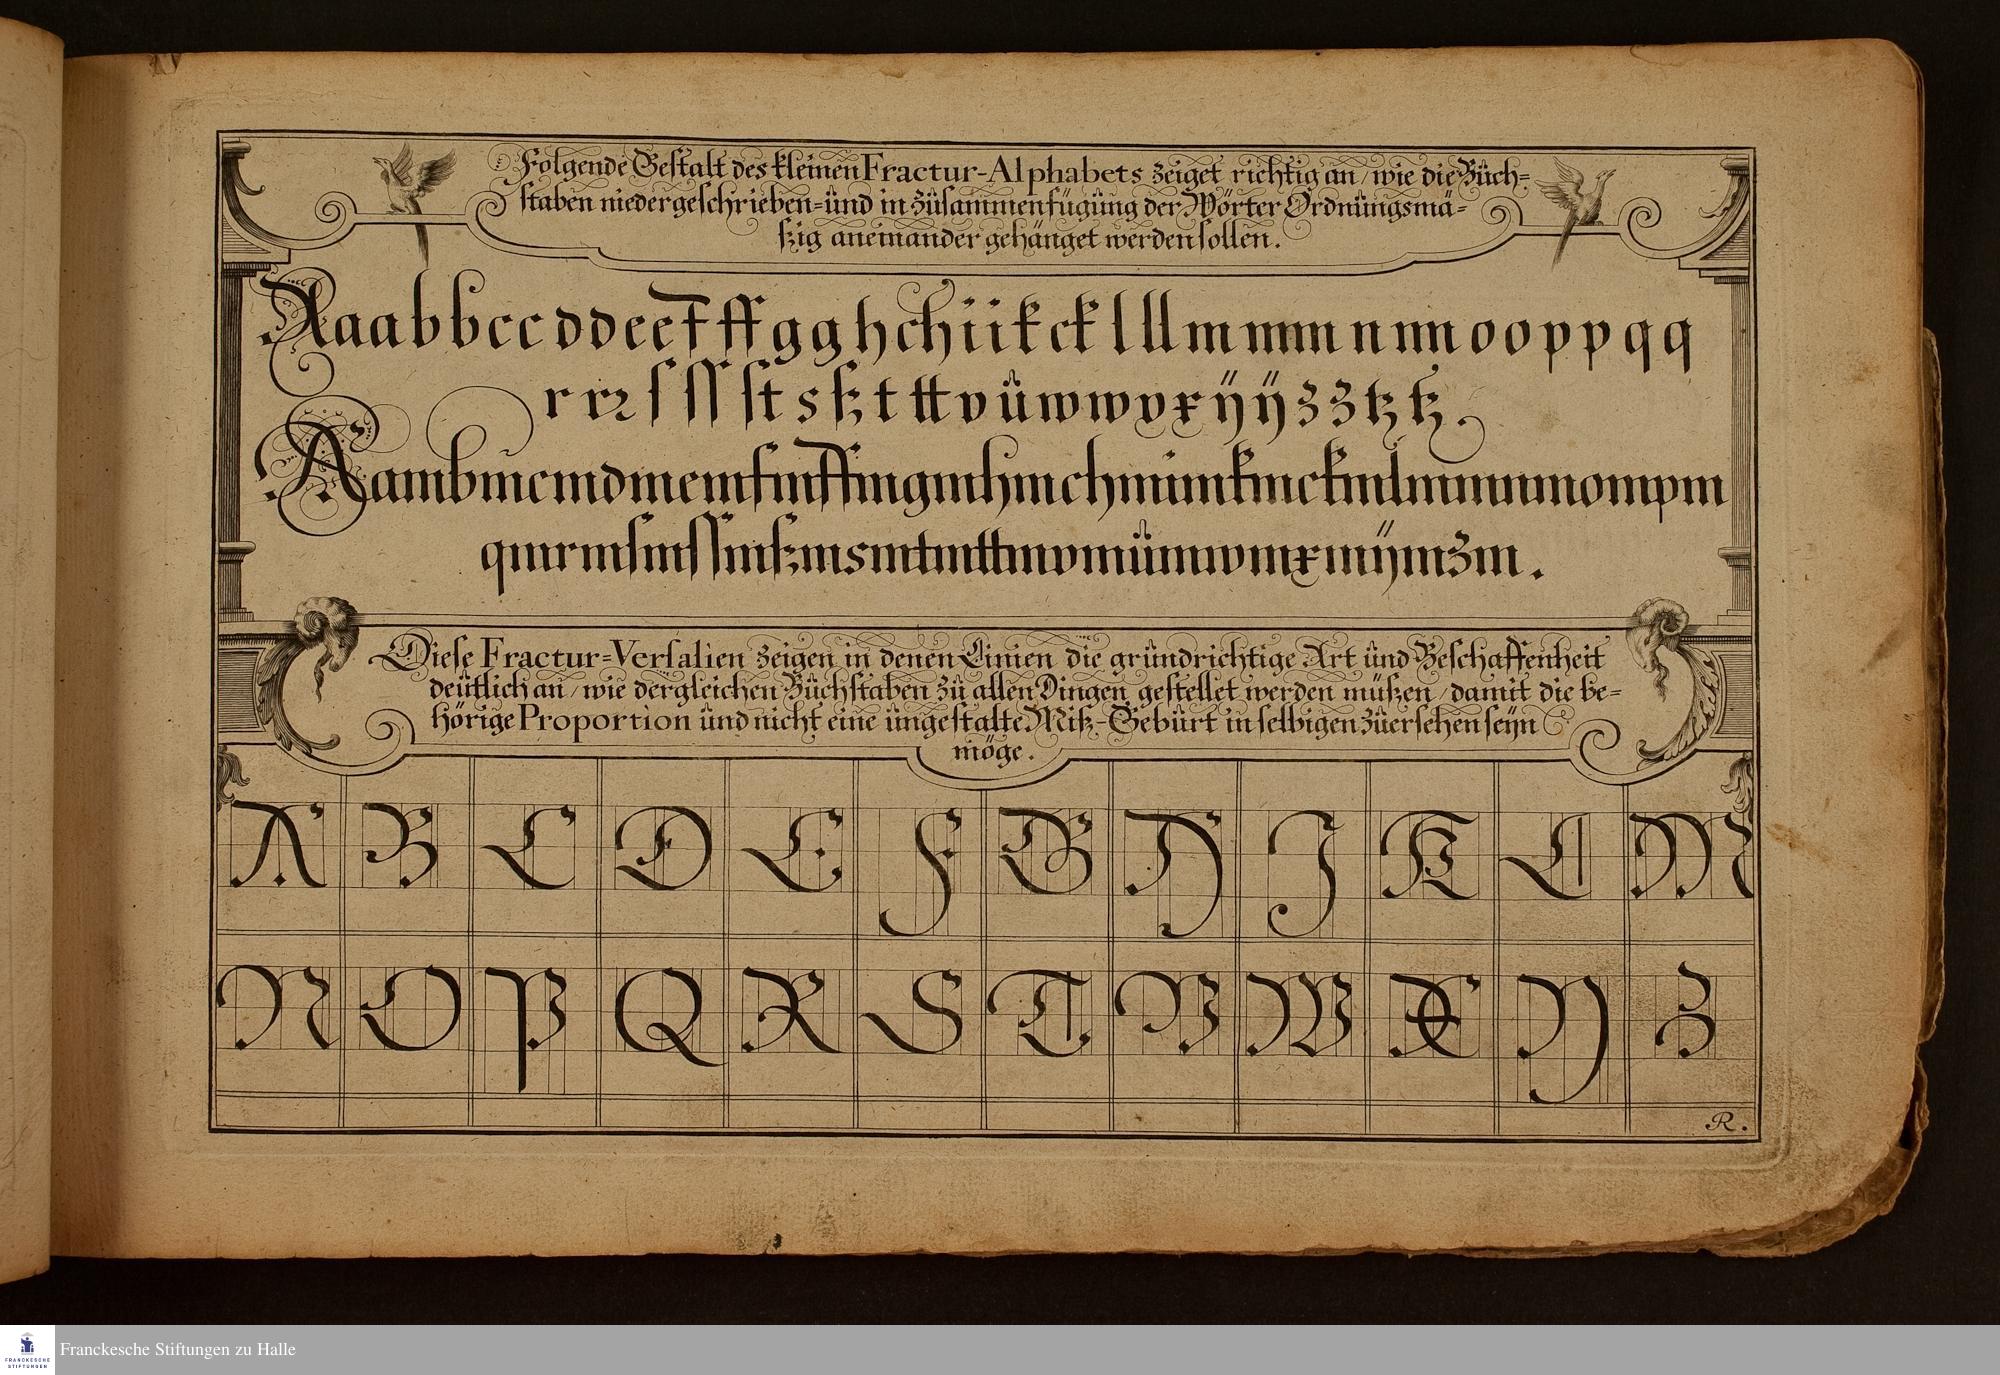 Folgende Gestalt des kleinen Fractur-Alphabets zeiget richtig an / wie die Büch=
staben niedergeschrieben= ünd in züsammenfügüng der Wörter Ordnüngsmä=
ßig aneinander gehänget werden sollen.
A a a b b c c d d e e f ff g g h ch i i k ck l ll m mm n nn o o p p q q
r r ꝛ ſ ſſ ſt s ß t tt v ü w w y x ÿ ÿ z z tz tz.
A ambmcmdmemfmffmgmhmchmimkmckmlmmmnmompm
qmrmſmſſmßmsmtmttmvmümwmxmÿmzm.
Diese Fractur=Versalien zeigen in denen Linien die gründrichtige Art ünd Beschaffenheit
deütlich an / wie dergleichen Büchstaben zü allen Dingen gestellet werden müßen / damit die be=
hörige Proportion ünd nicht eine üngestalte Miß-Gebürt in selbigen züersehen seyn
möge.
A B C D E F G H J K L M
N O P Q R S T V W X Y Z
R.
Franckesche Stiftungen zu Halle
FRANCKESCHE
STIFTUNGEN